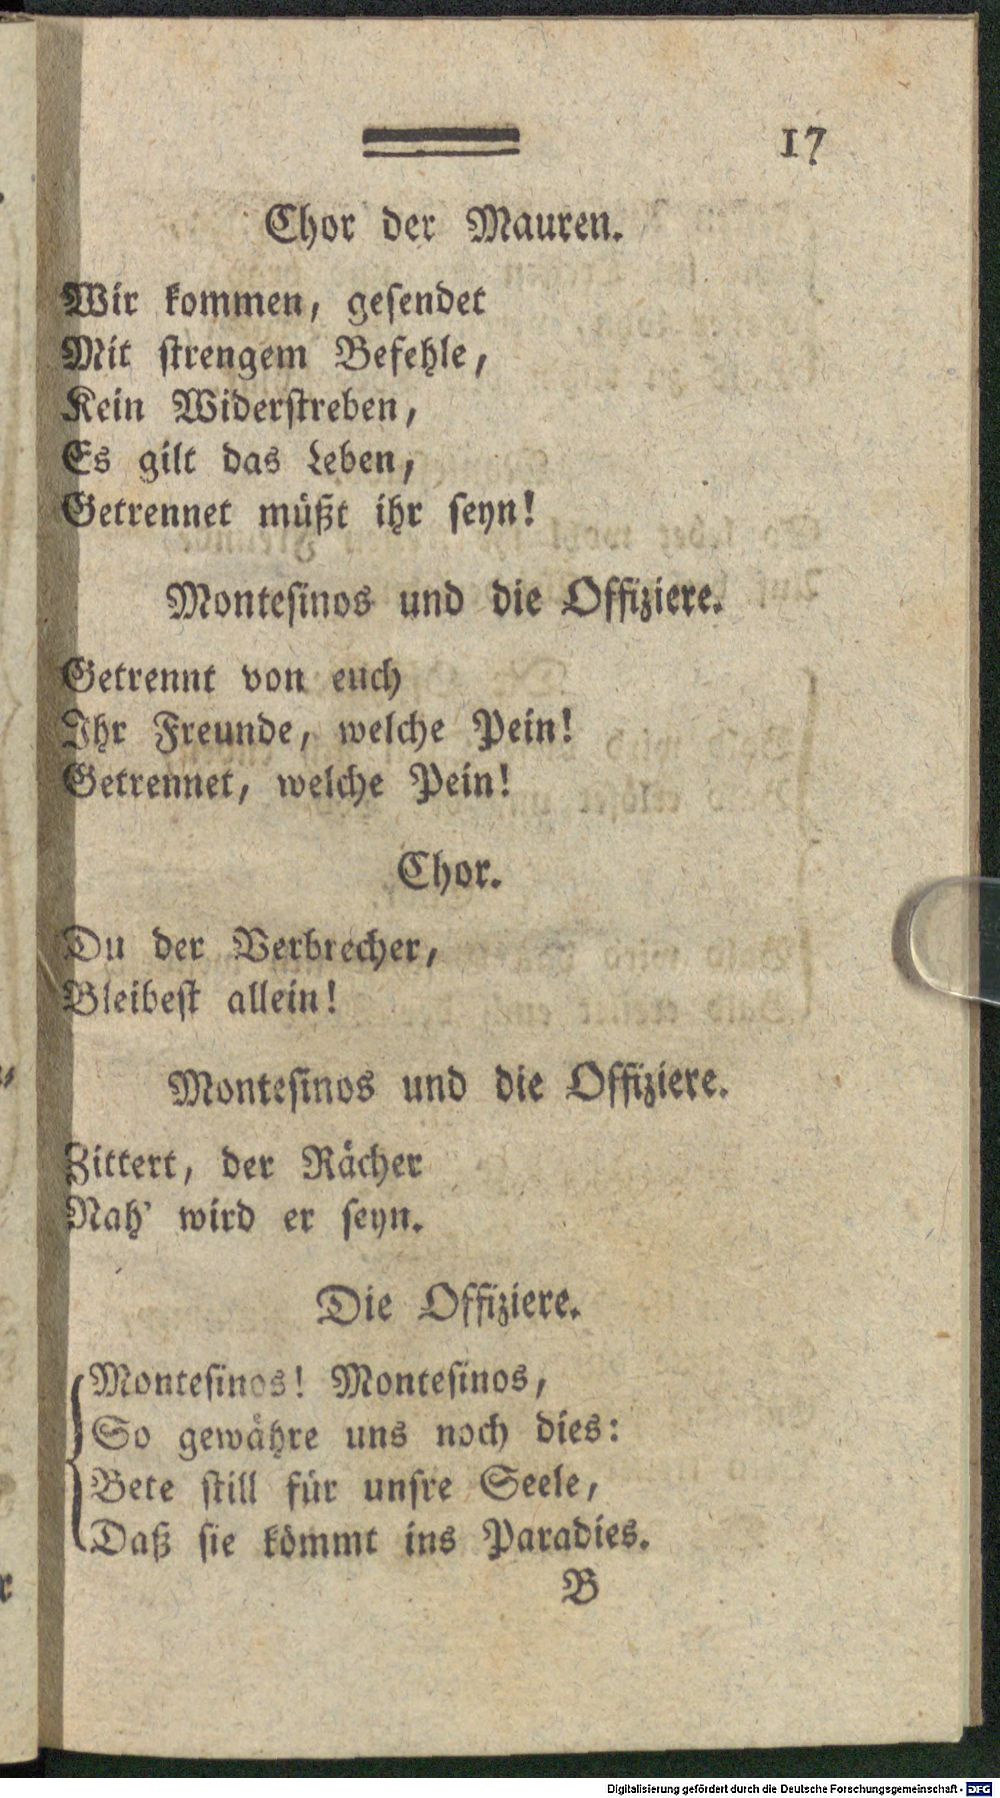 17
Chor der Mauren.
Wir kommen, gesendet
Mit strengem Befehle,
Kein Widerstreben,
Es gilt das Leben,
Getrennet müßt ihr seyn!
Montesinos und die Offiziere.
Getrennt von euch
Ihr Freunde, welche Pein!
Getrennet, welche Pein!
Chor.
Du der Verbrecher,
Bleibest allein!
Montesinos und die Offiziere.
Zittert, der Rächer
Nah' wird er seyn.
Die Offiziere.
Montesinos! Montesinos,
So gewähre uns noch dies:
Bete still für unsre Seele,
Daß sie kömmt ins Paradies.
B
Digitalisierung gefördert durch die Deutsche Forschungsgemeinschaft - DFG